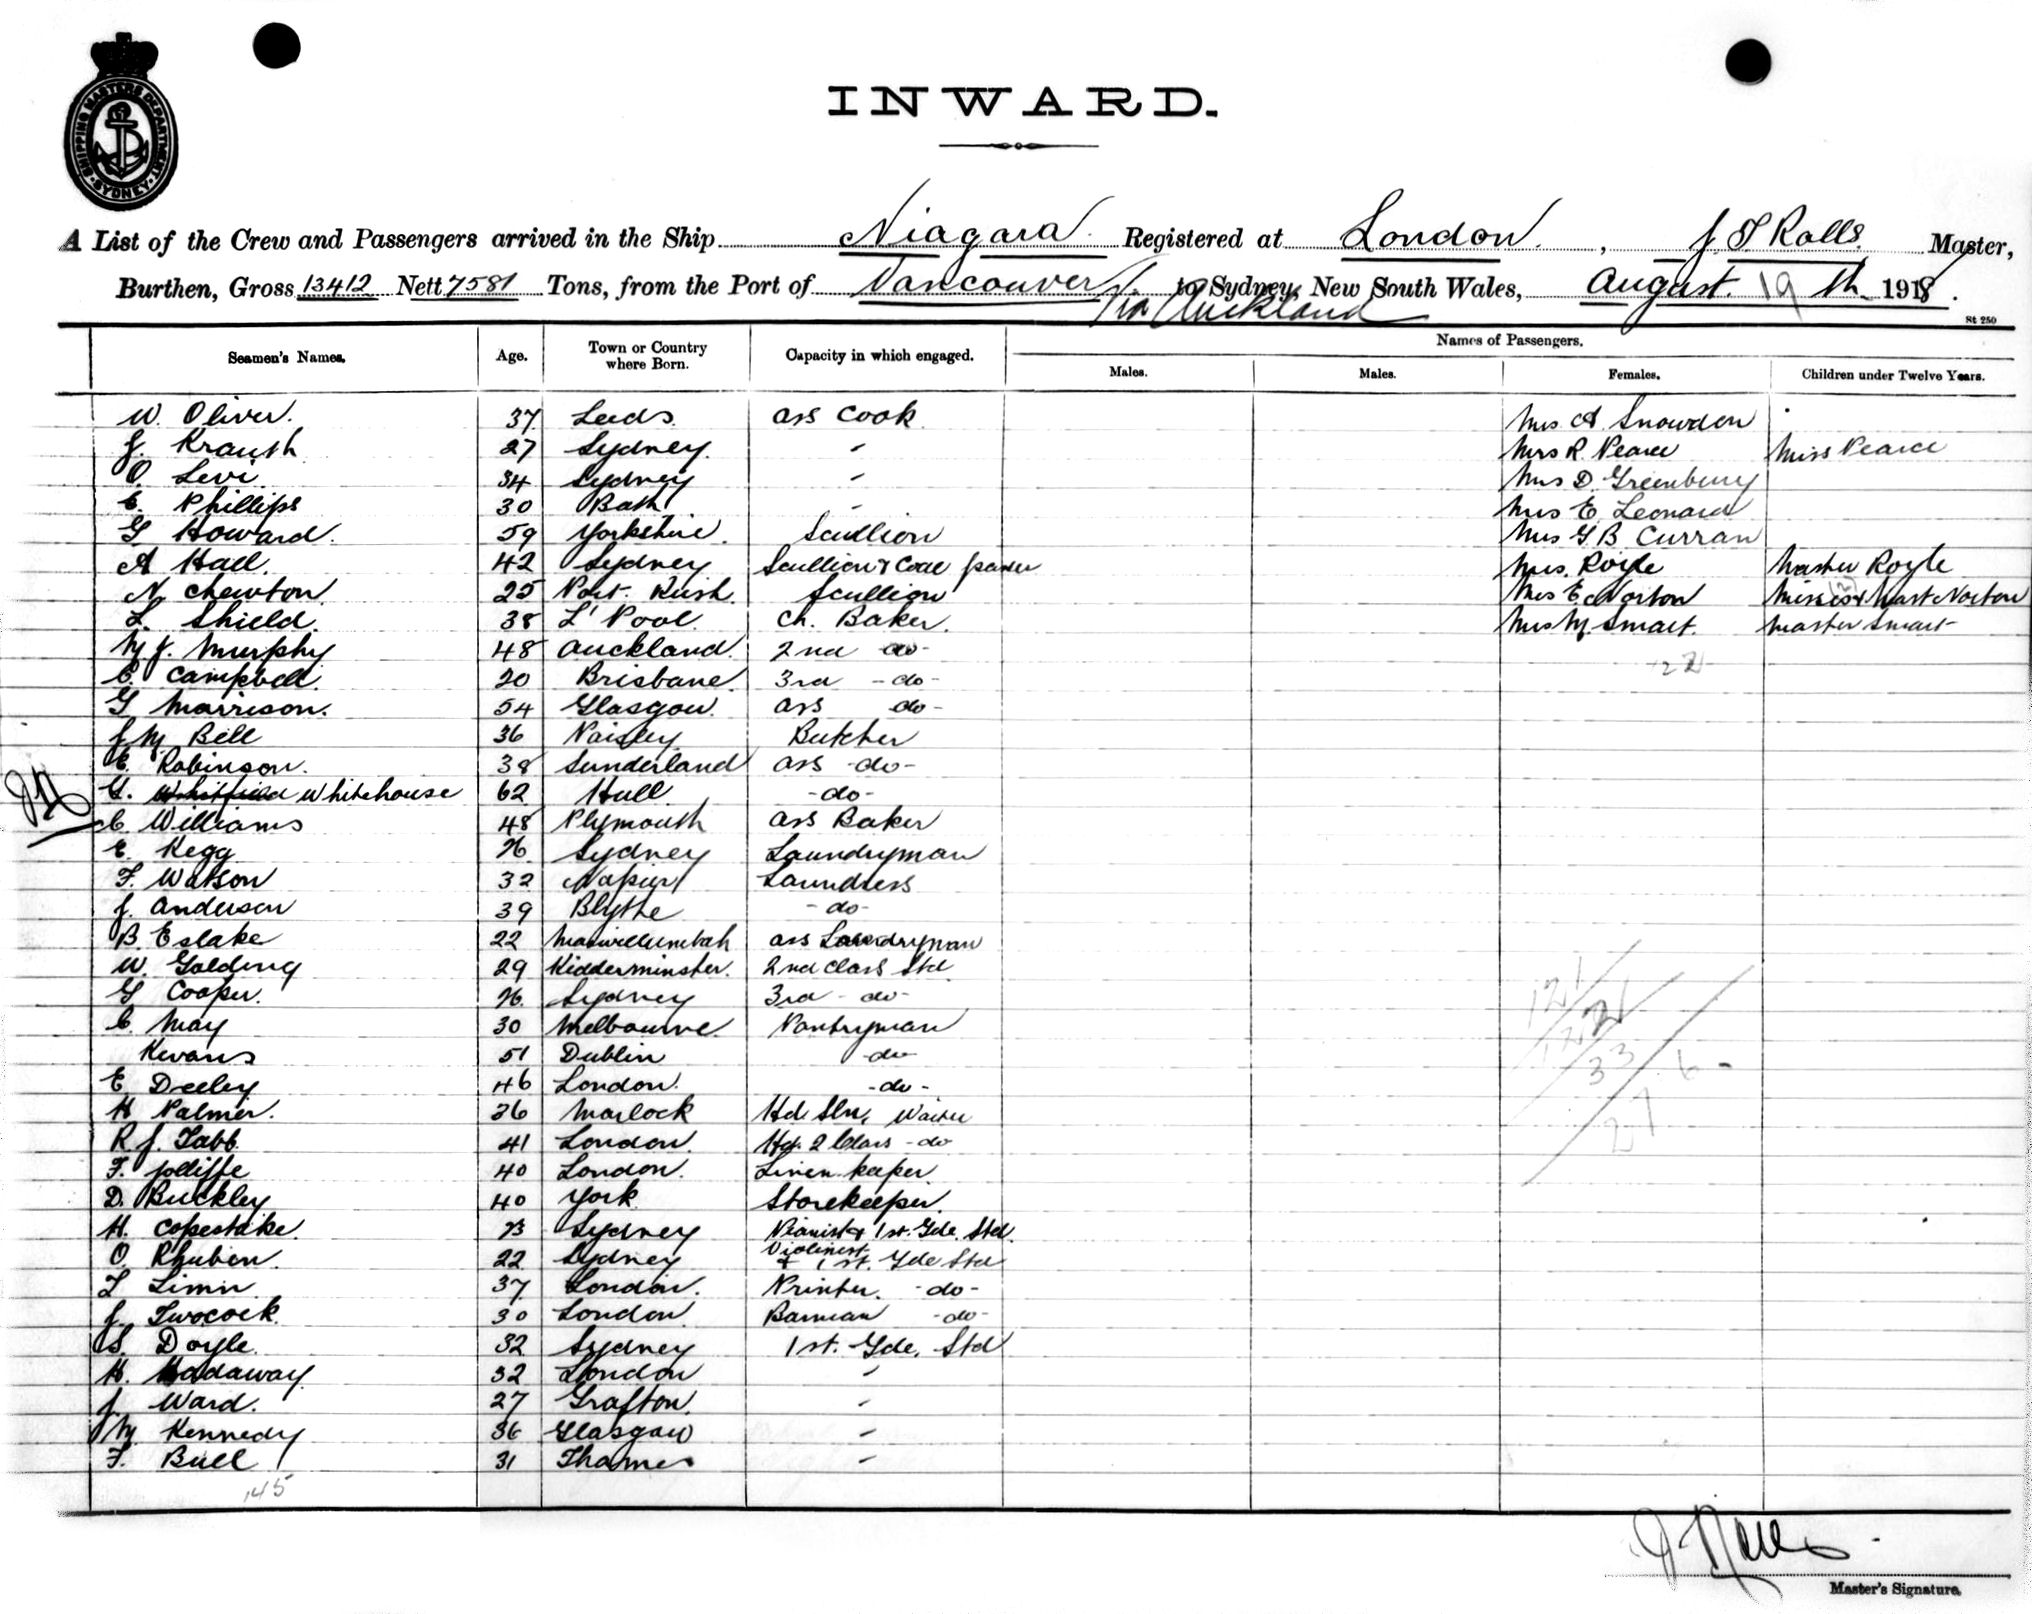 SHIPPING MASTERS DEPARTMENT
SYDNEY
INWARD.
A List of the Crew and Passengers arrived in the Ship Niagara Registered at London, J T Rolls Master,
Burthen, Gross 13412 Nett 7581 Tons, from the Port of Vancouver to Sydney, New South Wales, August 19th 1918.
Via Auckland
St 250
Seamen's Names. Age. Town or Country where Born. Capacity in which engaged. Names of Passengers.
Males. Males. Females. Children under Twelve Years.
W. Oliver. 37 Leeds. Ass Cook Mrs A Snowden
J. Krauth 27 Sydney. " Mrs R. Pearce Miss Pearce
O. Levi 34 Sydney " Mrs D. Greenbury
E. Phillips 30 Bath " Mrs E. Leonard
G Howard. 59 Yorkshire. Scullion Mrs G B Curran
A Hall. 42 Sydney Scullion & Coal Mrs. Royle Master Royle
N. Chewton 25 Port Rush. Scullion Mrs E Norton Misses & Mast Norton
L. Shield. 38 L'Pool. Ch. Baker. Mrs M. Smart. Master Smart
M J. Murphy 48 Auckland. 2nd -do- 22
C. Campbell. 20 Brisbane. 3rd -do-
G Morrison. 54 Glasgow. Ass do-
J M Bell 36 Paisley Butcher
E. Robinson. 38 Sunderland Ass -do-
G. Whitfield Whitehouse 62 Hull -do-
C. Williams 48 Plymouth Ass Baker
E. Kegg 26 Sydney Laundryman
F. Watson 32 Napier Laundress
J. Anderson 39 Blythe -do-
B. Eslake 22 Ass Laundryman
W. Golding 29 Kidderminster. 2nd Class Std
G Cooper. 26 Sydney 3rd -do-
C. May 30 Melbourne Pantryman
Kevans 51 Dublin -do-
E Deeley 46 London. -do-
H Palmer. 36 Marlock Hd Sln. Waiter
R J. Tabb 41 London. Hd. 2 Class -do
F. Jolliffe 40 London. Linen keeper.
D. Buckley 40 York Storekeeper.
H. Copestake. 23 Sydney Pianist & 1st. Gde. Std.
O. Rhuben. 22 Sydney Violinist & 1st. Gde Std
37 London. Printer. -do-
J. Twocock 30 London Barman -do-
S. Doyle. 32 Sydney 1st. Gde. Std
H. Hadaway 32 London "
J. Ward. 27 Grafton. "
M Kennedy 36 Glasgow "
F. Bull 31 Thames "
145
121
22
33
27 6 -
J. Rolls
Master's Signature.